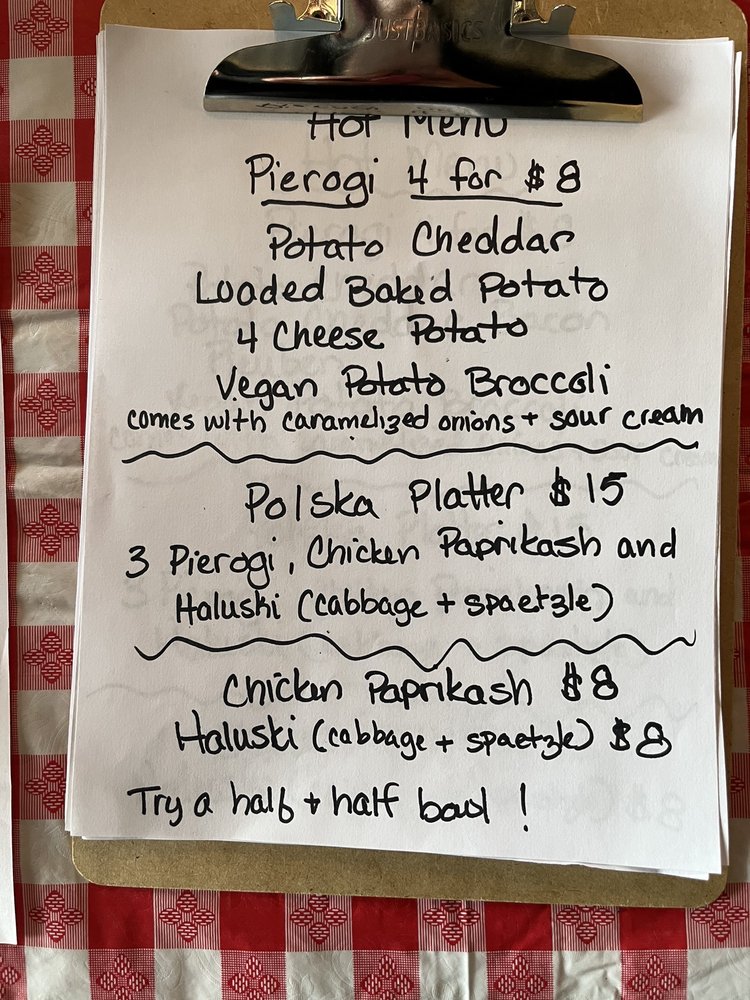 JUSTBASICS
Hot Menu
Pierogi 4 for $8
Potato Cheddar
Loaded Baked Potato
4 Cheese Potato
Vegan Potato Broccoli
comes with caramelized onions + sour cream
Polska Platter $15
3 Pierogi, Chicken Paprikash and
Haluski (cabbage + spaetzle)
Chicken Paprikash $8
Haluski (cabbage + spaetzle) $8
Try a half + half bowl!